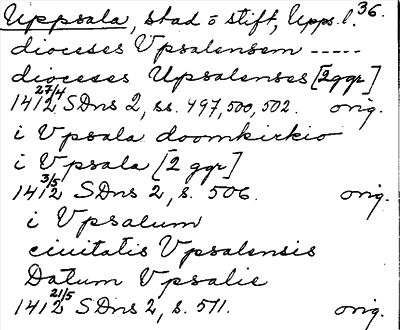 Uppsala, stad o stift, Upps. l. 36.
dioceses Vpsalensem -----
dioceses Upsalenses [2 ggr]
1412 27/4 SDns 2, ss. 497, 500, 502. orig.
i Vpsala doomkirkio
i Vpsala [2 ggr]
1412 3/5 SDns 2, s. 506. orig.
i Vpsalum
ciuitatis Vpsalensis
Datum Vpsalie
1412 21/5 SDns 2, s. 511. orig.